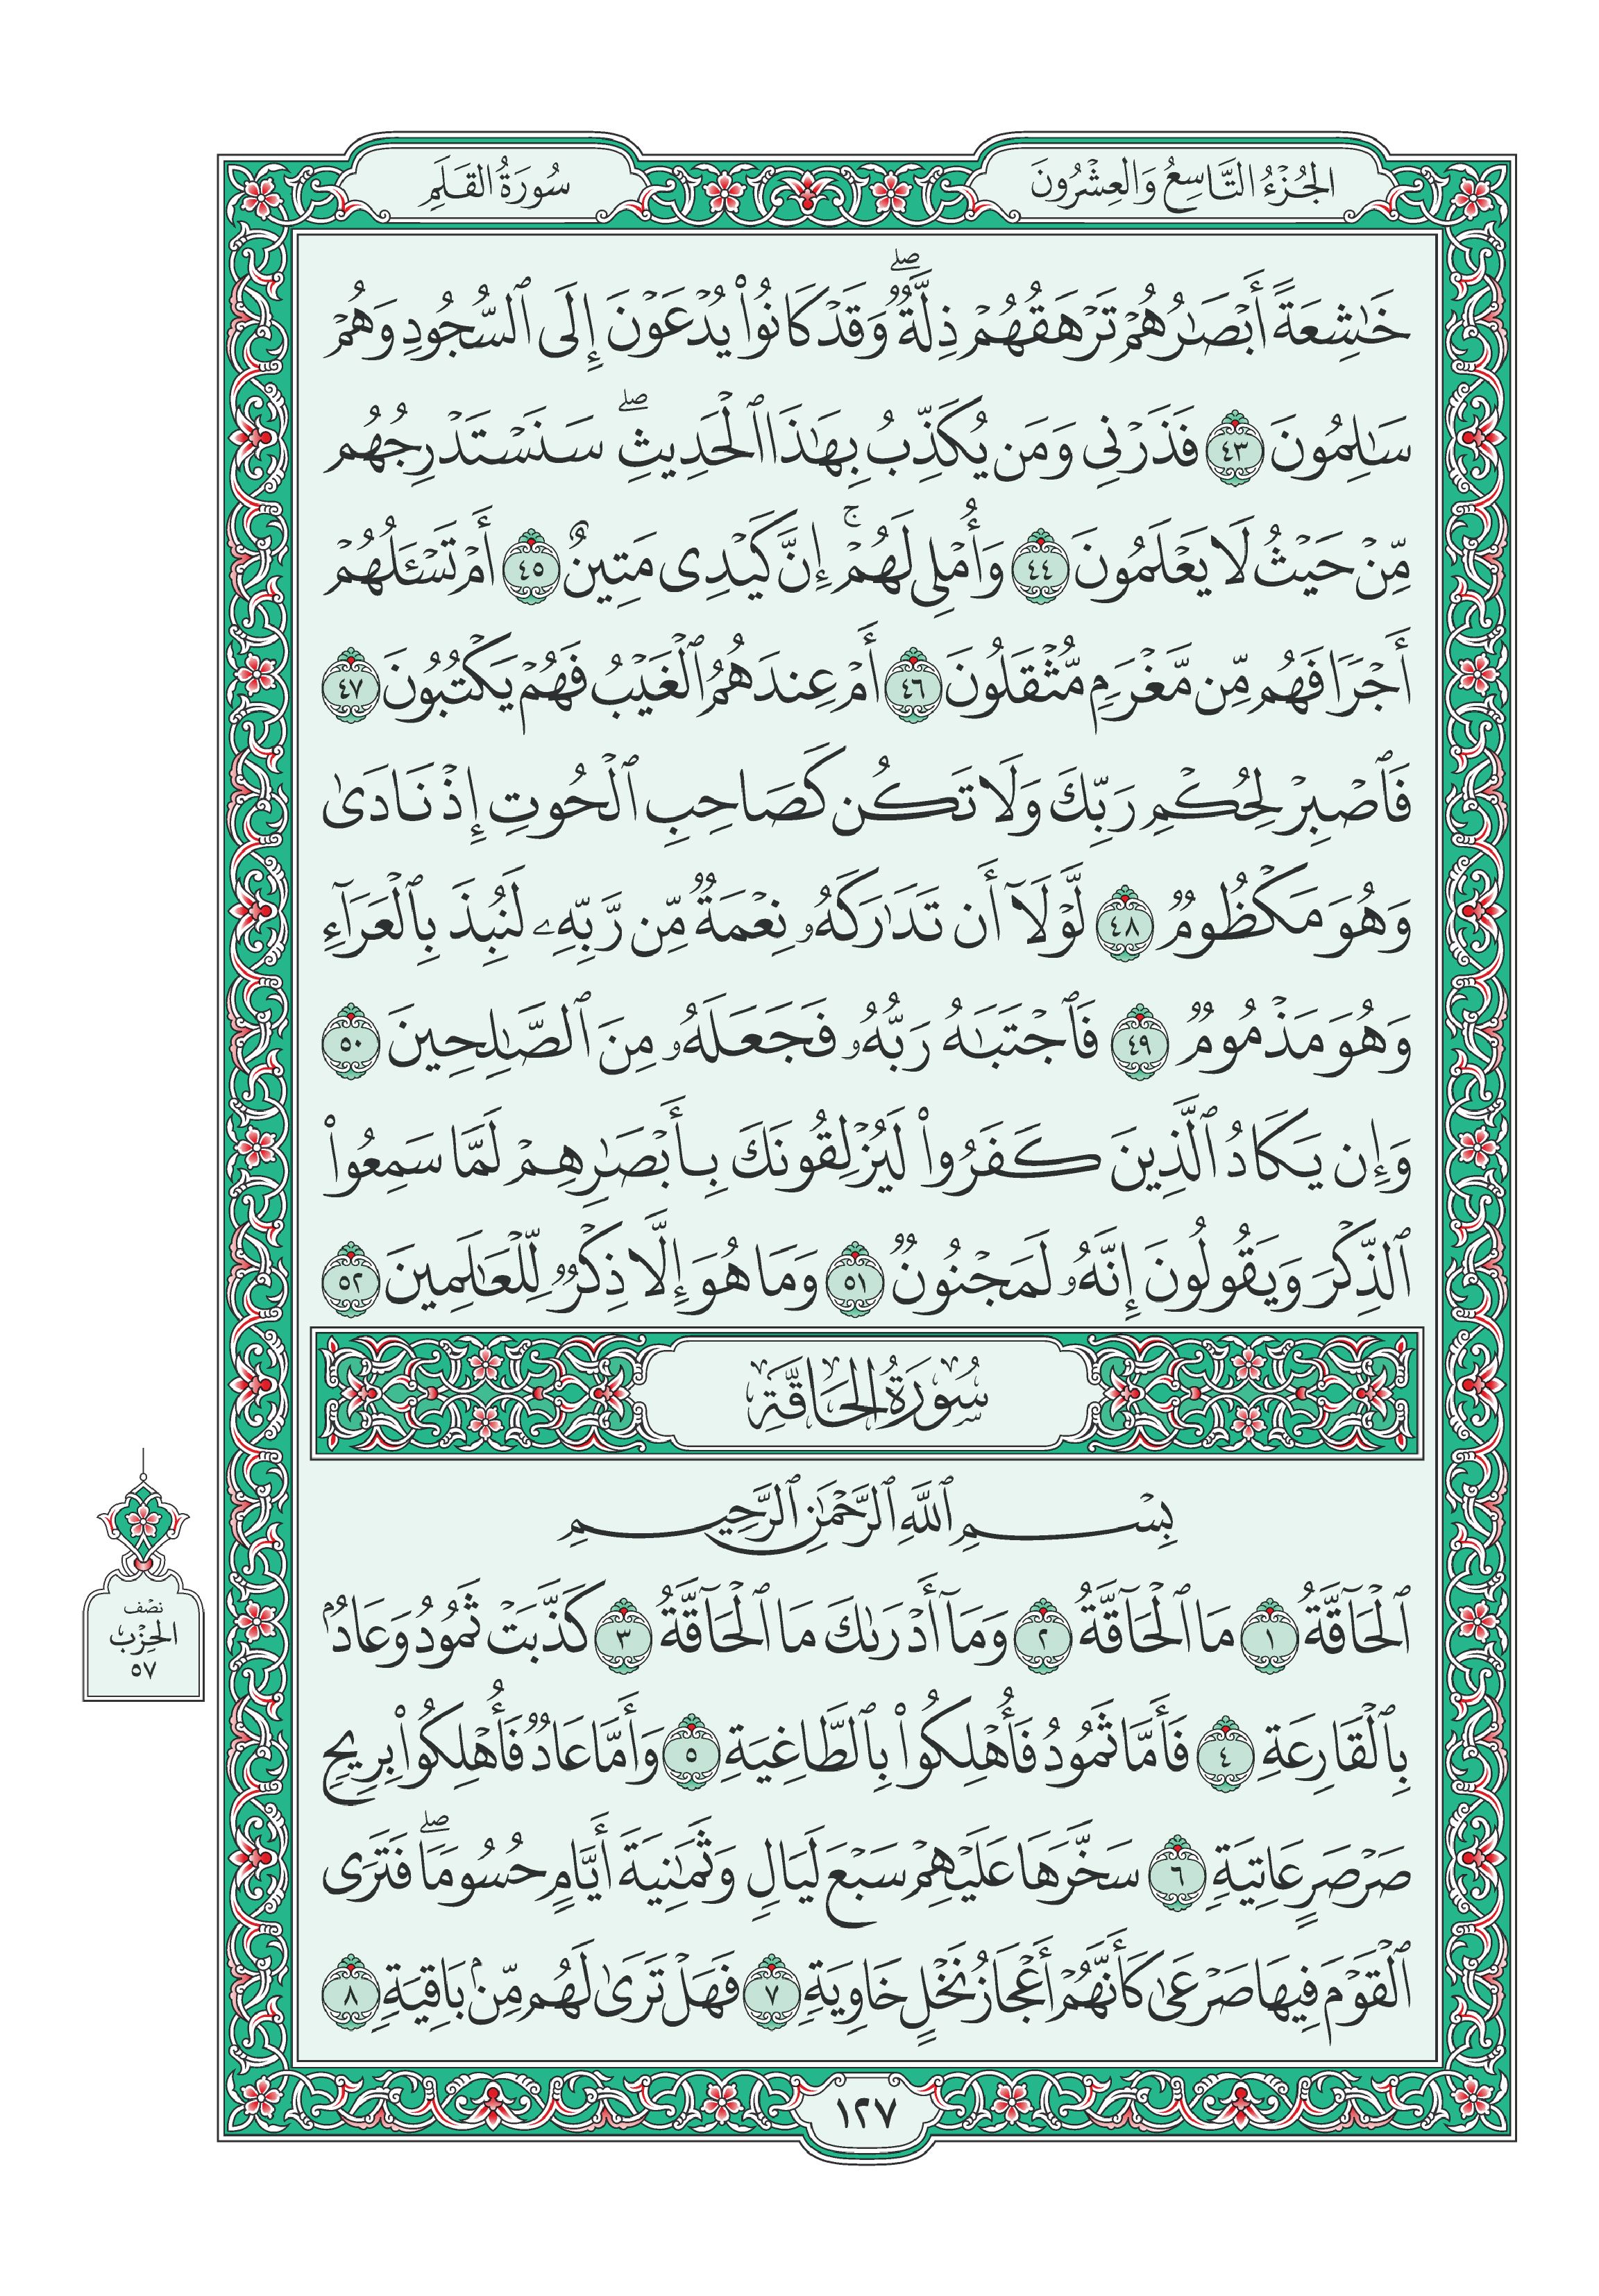 الجُزْءُ التَّاسِعُ وَالعِشْرُونَ
سُورَةُ القَلَمِ
خَٰشِعَةً أَبْصَٰرُهُمْ تَرْهَقُهُمْ ذِلَّةٌۖ وَقَدْ كَانُوا۟ يُدْعَوْنَ إِلَى ٱلسُّجُودِ وَهُمْ
سَٰلِمُونَ ٤٣ فَذَرْنِى وَمَن يُكَذِّبُ بِهَٰذَا ٱلْحَدِيثِۖ سَنَسْتَدْرِجُهُم
مِّنْ حَيْثُ لَا يَعْلَمُونَ ٤٤ وَأُمْلِى لَهُمْۚ إِنَّ كَيْدِى مَتِينٌ ٤٥ أَمْ تَسْـَٔلُهُمْ
أَجْرًا فَهُم مِّن مَّغْرَمٍ مُّثْقَلُونَ ٤٦ أَمْ عِندَهُمُ ٱلْغَيْبُ فَهُمْ يَكْتُبُونَ ٤٧
فَٱصْبِرْ لِحُكْمِ رَبِّكَ وَلَا تَكُن كَصَاحِبِ ٱلْحُوتِ إِذْ نَادَىٰ
وَهُوَ مَكْظُومٌ ٤٨ لَّوْلَآ أَن تَدَٰرَكَهُۥ نِعْمَةٌ مِّن رَّبِّهِۦ لَنُبِذَ بِٱلْعَرَآءِ
وَهُوَ مَذْمُومٌ ٤٩ فَٱجْتَبَٰهُ رَبُّهُۥ فَجَعَلَهُۥ مِنَ ٱلصَّٰلِحِينَ ٥٠
وَإِن يَكَادُ ٱلَّذِينَ كَفَرُوا۟ لَيُزْلِقُونَكَ بِأَبْصَٰرِهِمْ لَمَّا سَمِعُوا۟
ٱلذِّكْرَ وَيَقُولُونَ إِنَّهُۥ لَمَجْنُونٌ ٥١ وَمَا هُوَ إِلَّا ذِكْرٌ لِّلْعَٰلَمِينَ ٥٢
سُورَةُ الحَاقَّةِ
بِسْمِ ٱللَّهِ ٱلرَّحْمَٰنِ ٱلرَّحِيمِ
ٱلْحَآقَّةُ ١ مَا ٱلْحَآقَّةُ ٢ وَمَآ أَدْرَىٰكَ مَا ٱلْحَآقَّةُ ٣ كَذَّبَتْ ثَمُودُ وَعَادٌۢ
بِٱلْقَارِعَةِ ٤ فَأَمَّا ثَمُودُ فَأُهْلِكُوا۟ بِٱلطَّاغِيَةِ ٥ وَأَمَّا عَادٌ فَأُهْلِكُوا۟ بِرِيحٍ
صَرْصَرٍ عَاتِيَةٍ ٦ سَخَّرَهَا عَلَيْهِمْ سَبْعَ لَيَالٍ وَثَمَٰنِيَةَ أَيَّامٍ حُسُومًاۖ فَتَرَى
ٱلْقَوْمَ فِيهَا صَرْعَىٰ كَأَنَّهُمْ أَعْجَازُ نَخْلٍ خَاوِيَةٍ ٧ فَهَلْ تَرَىٰ لَهُم مِّنۢ بَاقِيَةٍ ٨
نصف
الحِزْب
٥٧
١٢٧